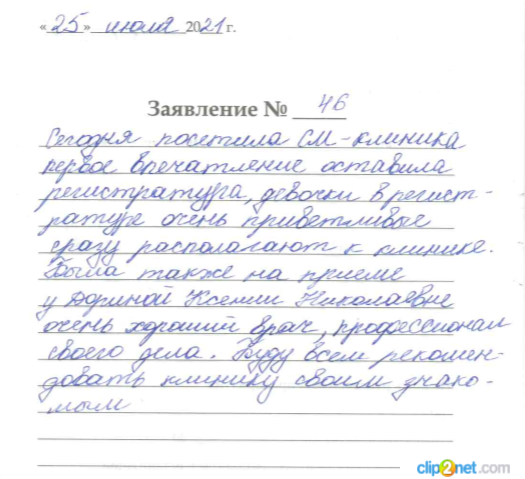 «25» июля 2021 г.
Заявление № 46
Сегодня посетила СМ-клиника
первое впечатление оставила
регистратура, девочки в регист-
ратуре очень приветливые
сразу располагают к клинике.
Была также на приеме
у Дориной Ксении Николаевне
очень хороший врач, профессионал
своего дела. Буду всем рекомен-
довать клинику своим знако-
мым
clip2net.com